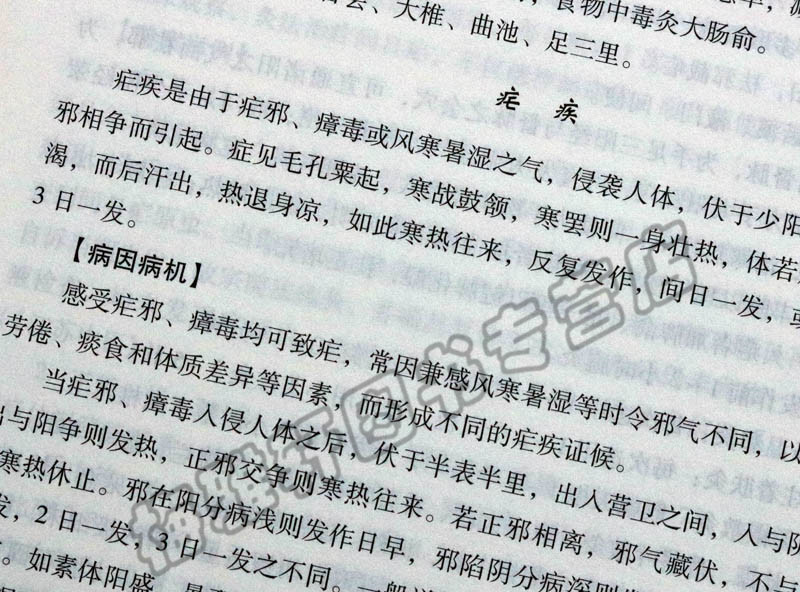 食物中毒灸大肠俞。
大椎、曲池、足三里。
疟 疾
疟疾是由于疟邪、瘴毒或风寒暑湿之气，侵袭人体，伏于少阳
邪相争而引起。症见毛孔粟起，寒战鼓颔，寒罢则一身壮热，体若
渴，而后汗出，热退身凉，如此寒热往来，反复发作，间日一发，或
3日一发。
【病因病机】
感受疟邪、瘴毒均可致疟，常因兼感风寒暑湿等时令邪气不同，以
劳倦、痰食和体质差异等因素，而形成不同的疟疾证候。
当疟邪、瘴毒人侵人体之后，伏于半表半里，出人营卫之间，人与阴
与阳争则发热，正邪交争则寒热往来。若正邪相离，邪气藏伏，不与
寒热休止。邪在阳分病浅则发作日早，邪陷阴分病深则
发，2日一发，3日一发之不同。一般
。如素体阳盛，
图书专营店